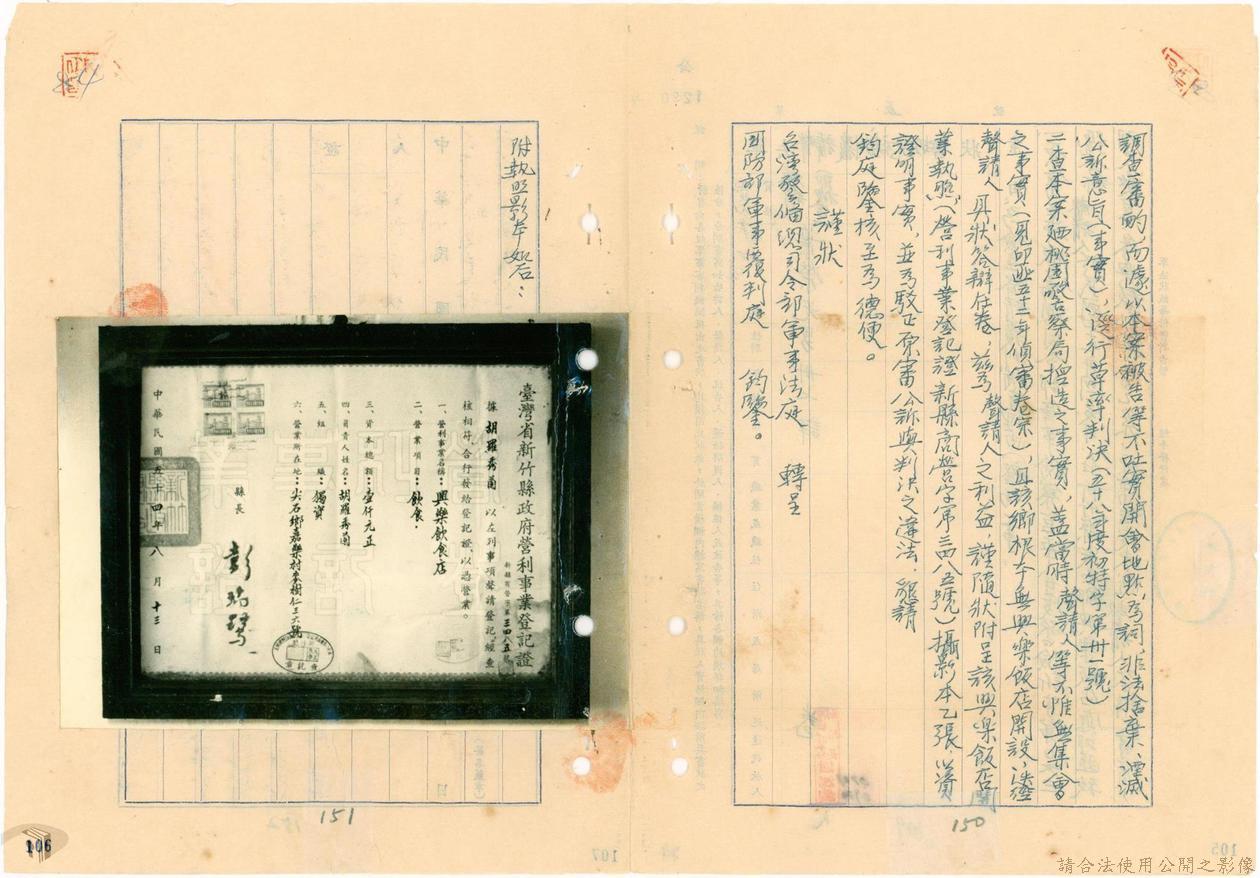 調查審酌,而遽以本案被告等不吐實開會地點為詞,非法捨棄,湮滅
公訴意旨(事實),逕行草率判決(五十八年度初特字第卅一號)
二查本案廼桃園警察局揑造之事實,蓋當時聲請人等不惟無集會
之事實(見卯迊五十三年偵審卷宗),且該鄉根本無興樂飯店開設,迭經
聲請人具狀答辯在卷,茲為聲請人之利益,謹隨狀附呈該興樂飯店開
業執照(營利事業登記證新縣商營字第三四八五號)攝影本乙張,以資
證明事實,並為駁正原審公訴與判決之違法,懇請
鈞庭鑒核至為德便。
謹狀
台灣警備總司令部軍事法庭 轉呈
國防部軍事覆判庭 鈞鑒。
150
附執照影本如后:
臺灣省新竹縣政府營利事業登記證
新縣商營字第三四八五號
據 胡羅秀蘭 以左列事項聲請登記,經查
核相符,合行發給登記證,以憑營業。
一、營利事業名稱:興樂飲食店
二、營業項目:飲食.
三、資本總額:壹仟元正
四、負責人姓名:胡羅秀蘭
五、組織:獨資
六、營業所在地:尖石鄉嘉樂村麥樹仁三六號
縣長 彭瑞鷺
中華民國五十四年八月十三日
151
106
請合法使用公開之影像